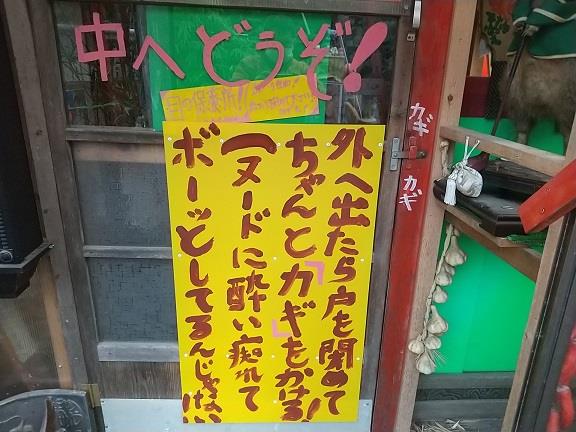 中へどうぞ!
目の保養所!!
外へ出たら戸を閉めて
ちゃんと「カギ」をかける!
(ヌードに酔い痴れて
ボーッとしてるんじゃない
カギ
カギ